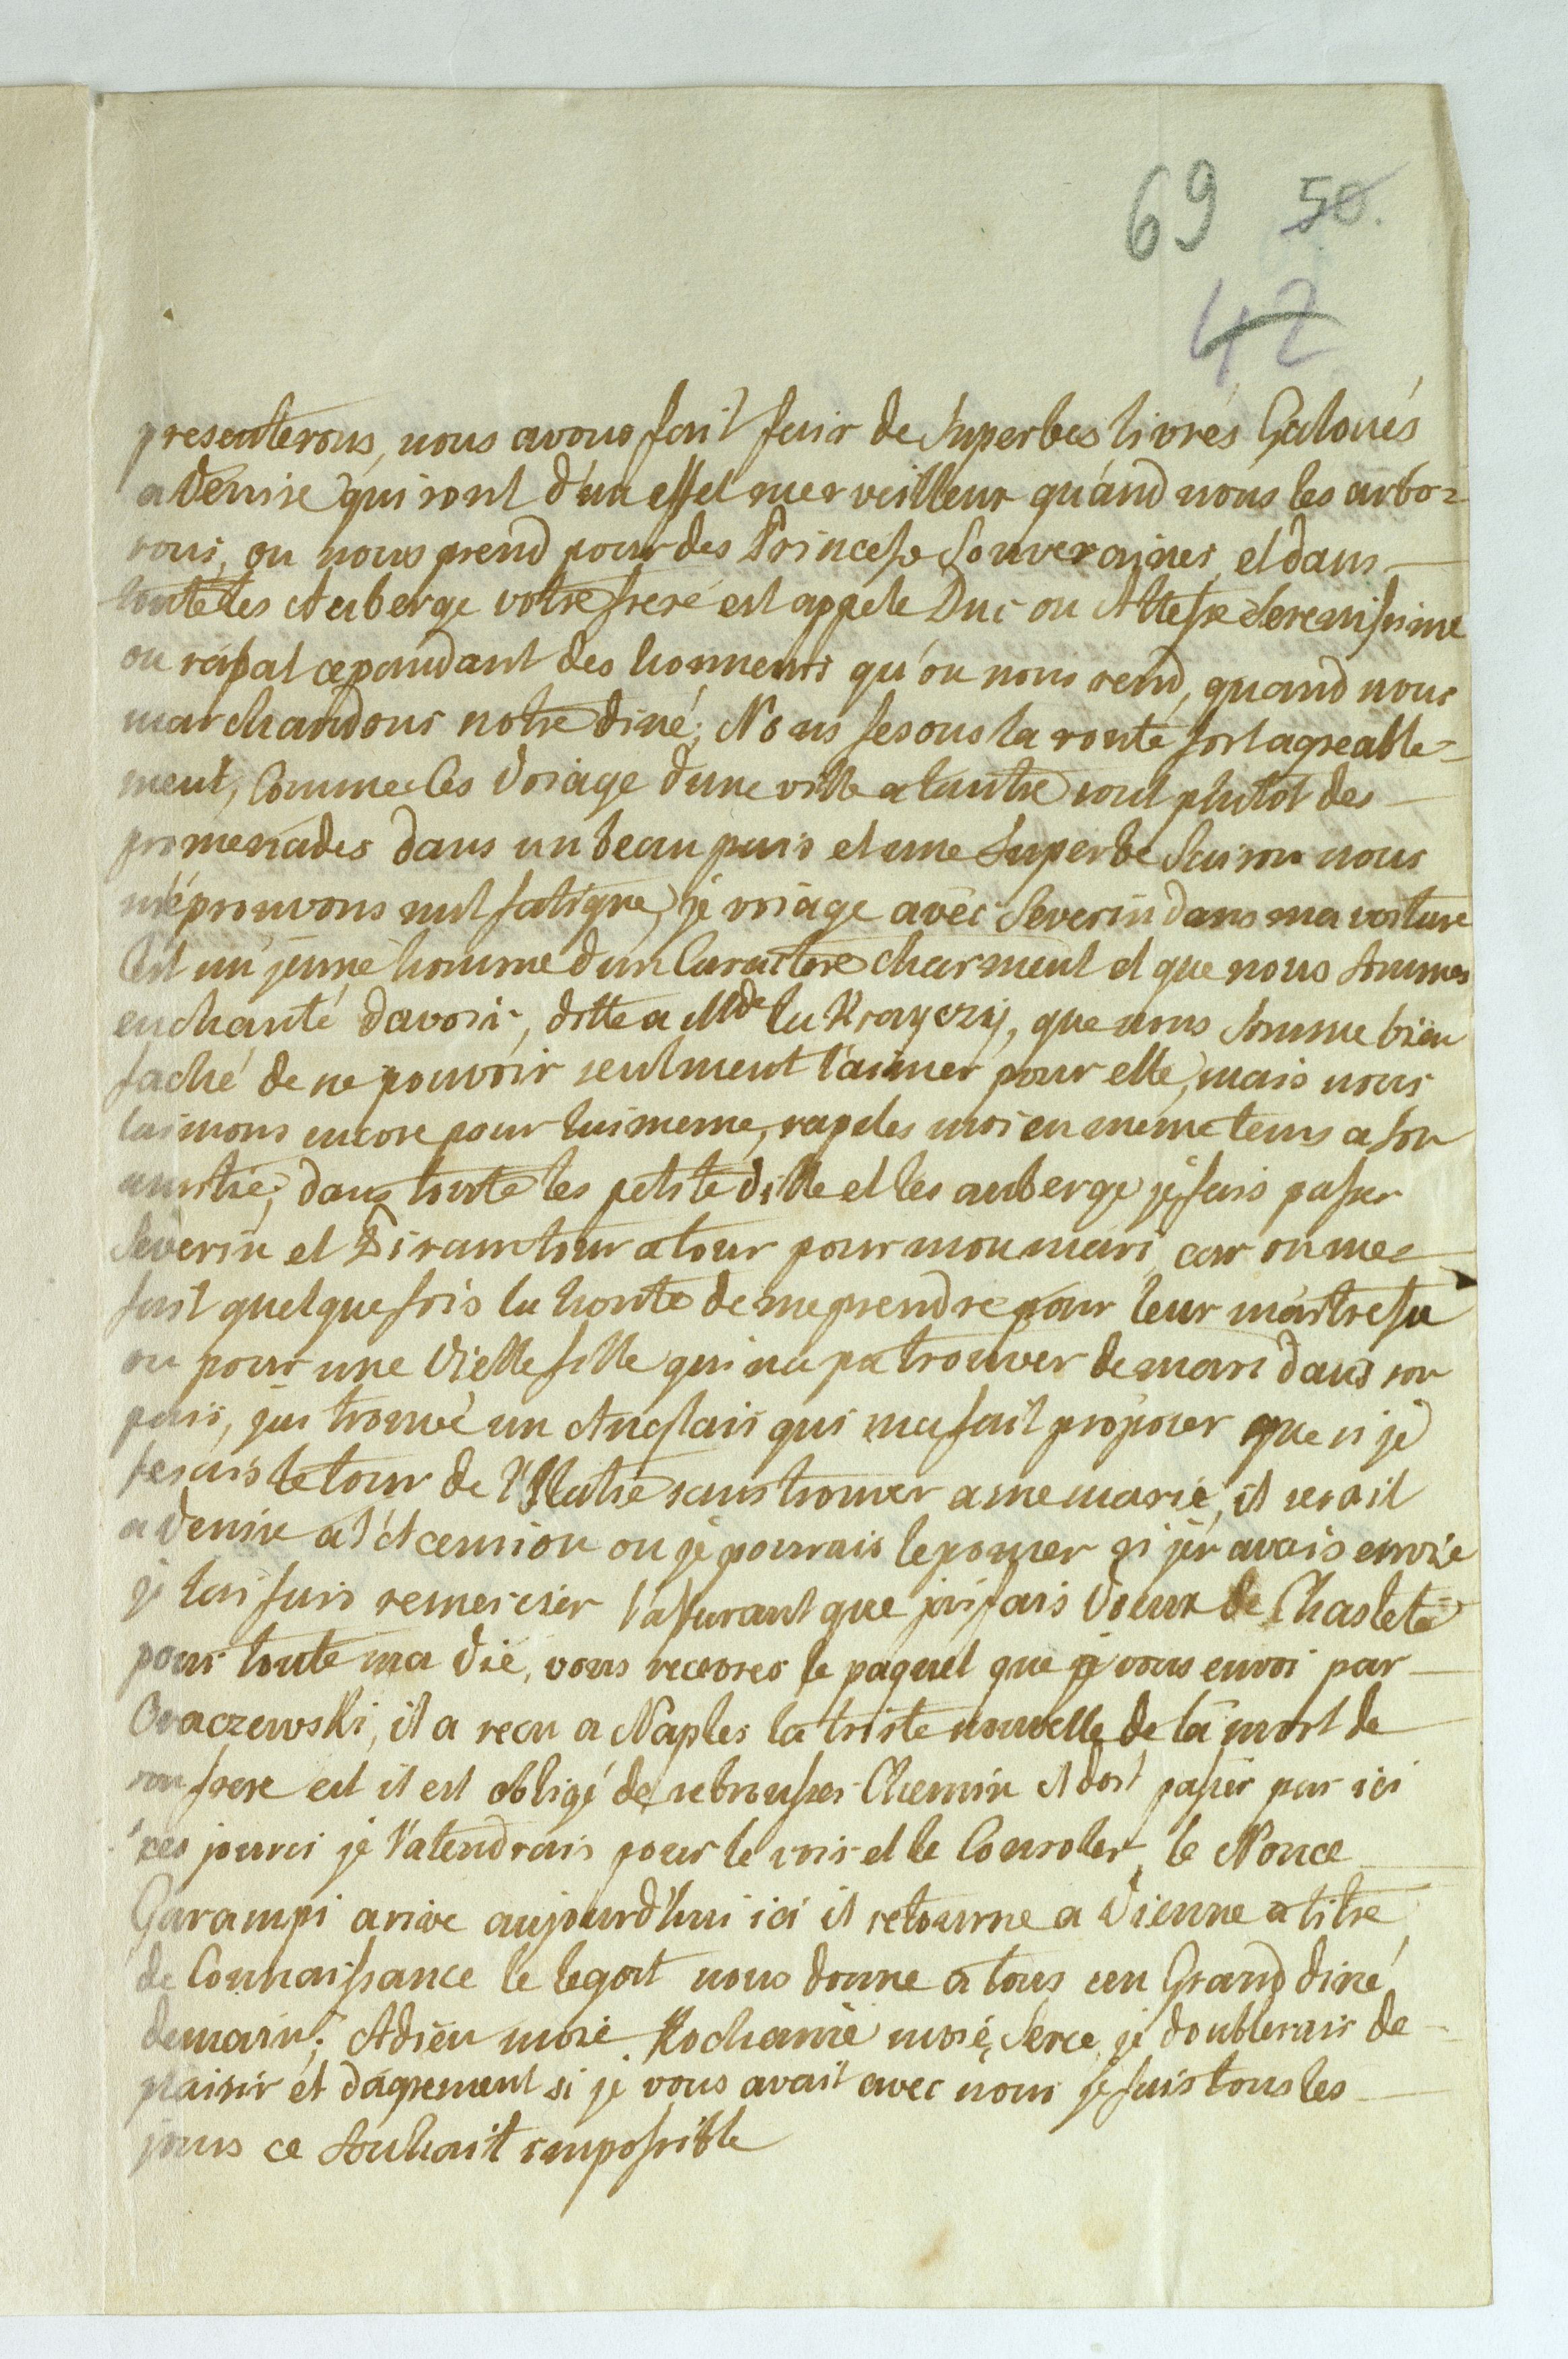 69 50.
42
presenterons, nous avons fait fair de superbes livrés Galonés
a Venise qui sont d'un effet merveilleux quánd nous les arbo=
rons, on nous prend pour des Princesse Souveraines et dans
toute les Auberge votre frere est appele Duc ou Altesse Serenissime
on rabat cepandant des honneurs qu'on nous rend, quand nous
marchandons notre diné, Nous fesons la route fort agreable=
ment, Comme les Voiage dune ville a lautre sont plutot des
promenades dans un beau pais et une superbe Saison nous
n'éprouvons nul fatigue, je voiage avec Severin dans ma voiture
C'est un jeune homme dun Caractere charment et que nous sommes
enchanté davoir, ditte a Mde la Krayczy, que nous somme bien
faché de ne pouvoir seulment l'aimer pour elle, mais nous
laimons encore pour lui meme, rapeles moi en meme tems a son
amitié, dans toute les petite Ville et les auberge je fais passer
Severin et tour a tour pour mon mari car on me
fait quelque fois la honte de me prendre pour leur maitresse
ou pour une Vielle fille qui na pa trouver de mari dans son
pais, jai trouvé un Anglais qui ma fait proposer que si je
fesais le tour de l'Italie sans trouver a me marié, il serait
a Venise a l'Acension ou je pourais leponser si j'en avais envoie
je lui fais remercier l'assurant que jai fais Voeux de Chasteté
pour toute ma Vie, vous receves le paquet que je vous envoi par
Oraczewski, il a recu a Naples la triste nouvelle de la mort de
son frere et il est obligé de rebrousser Chemin il doit passer par ici
ces jourci je l'atendrais pour le voir et le Consoler, le Nonce
Garampi arive aujourd'hui ici il retourne a Vienne a titre
de Connaissance le legat nous donne a tous un Grand diné
demain; Adieu moie Kochanie moie Serce, je doublerais de
plaisir et dágrement si je vous avait avec nous je fais tous les
jours ce souhait impossible